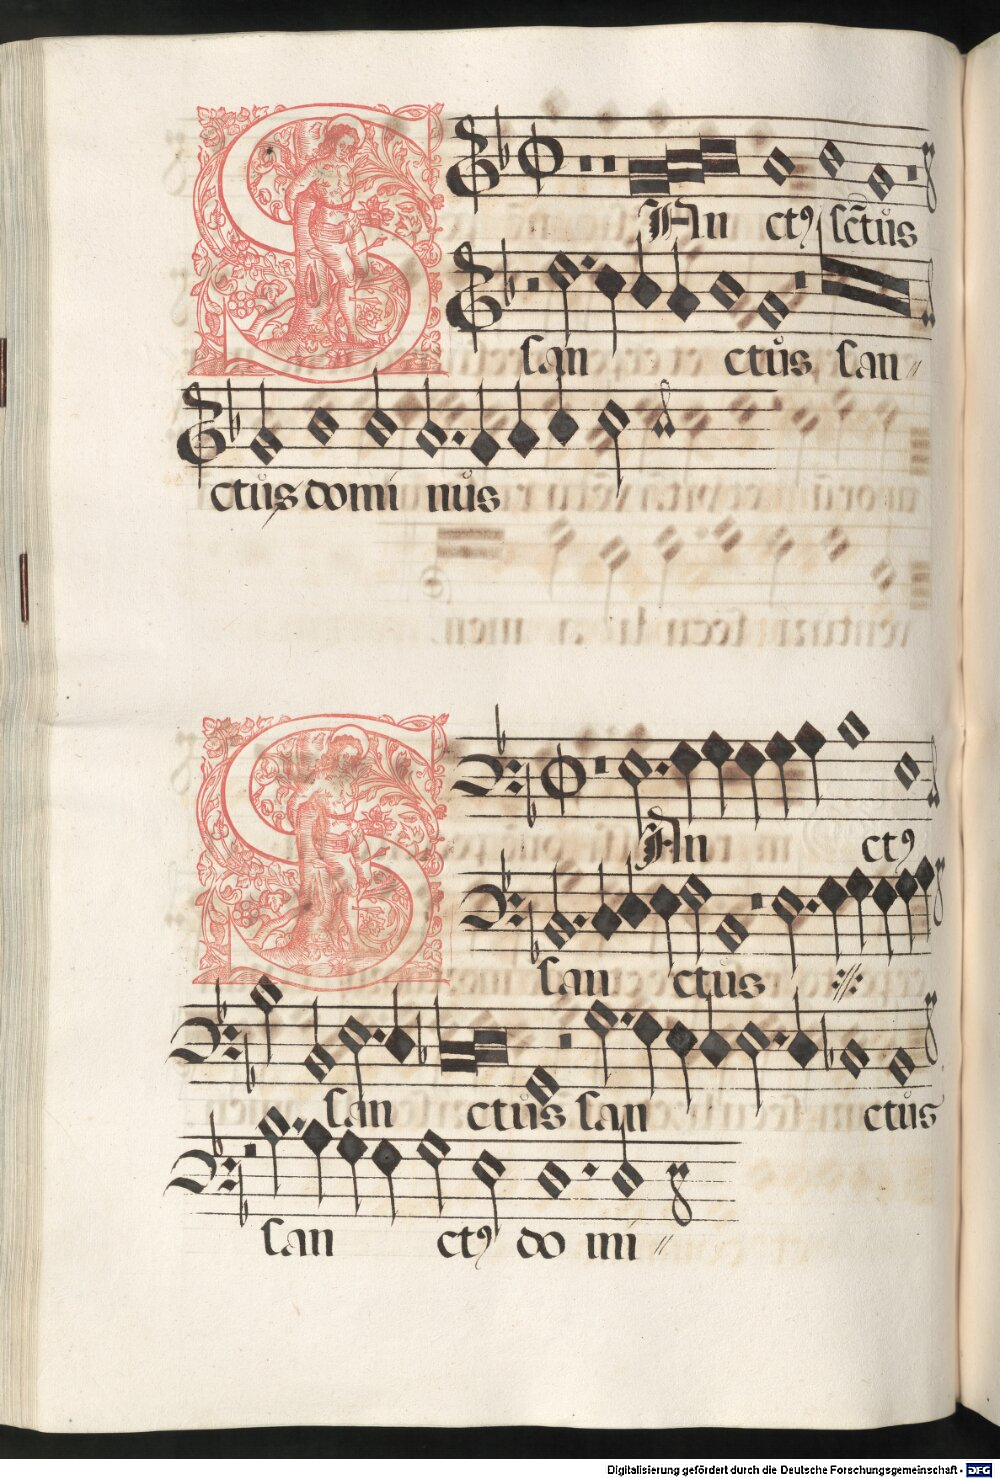 SAn ctꝰ sc̃tus
san ctus san〃
ctus domi nus
SAn ctꝰ
san ctus ://:
san ctus san ctus
san ctꝰ do mi〃
Digitalisierung gefördert durch die Deutsche Forschungsgemeinschaft - DFG